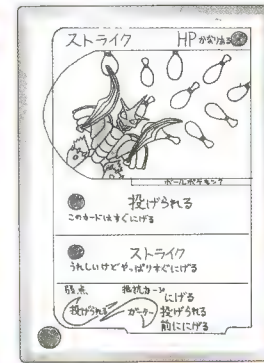 ストライク HPかなりある
ボールポケモン？
投げられる
このカードはすぐにげる
ストライク
うれしいけどやっぱりすぐにげる
弱点 抵抗力
投げられる ガーター
にげる
投げられる
前ににげる